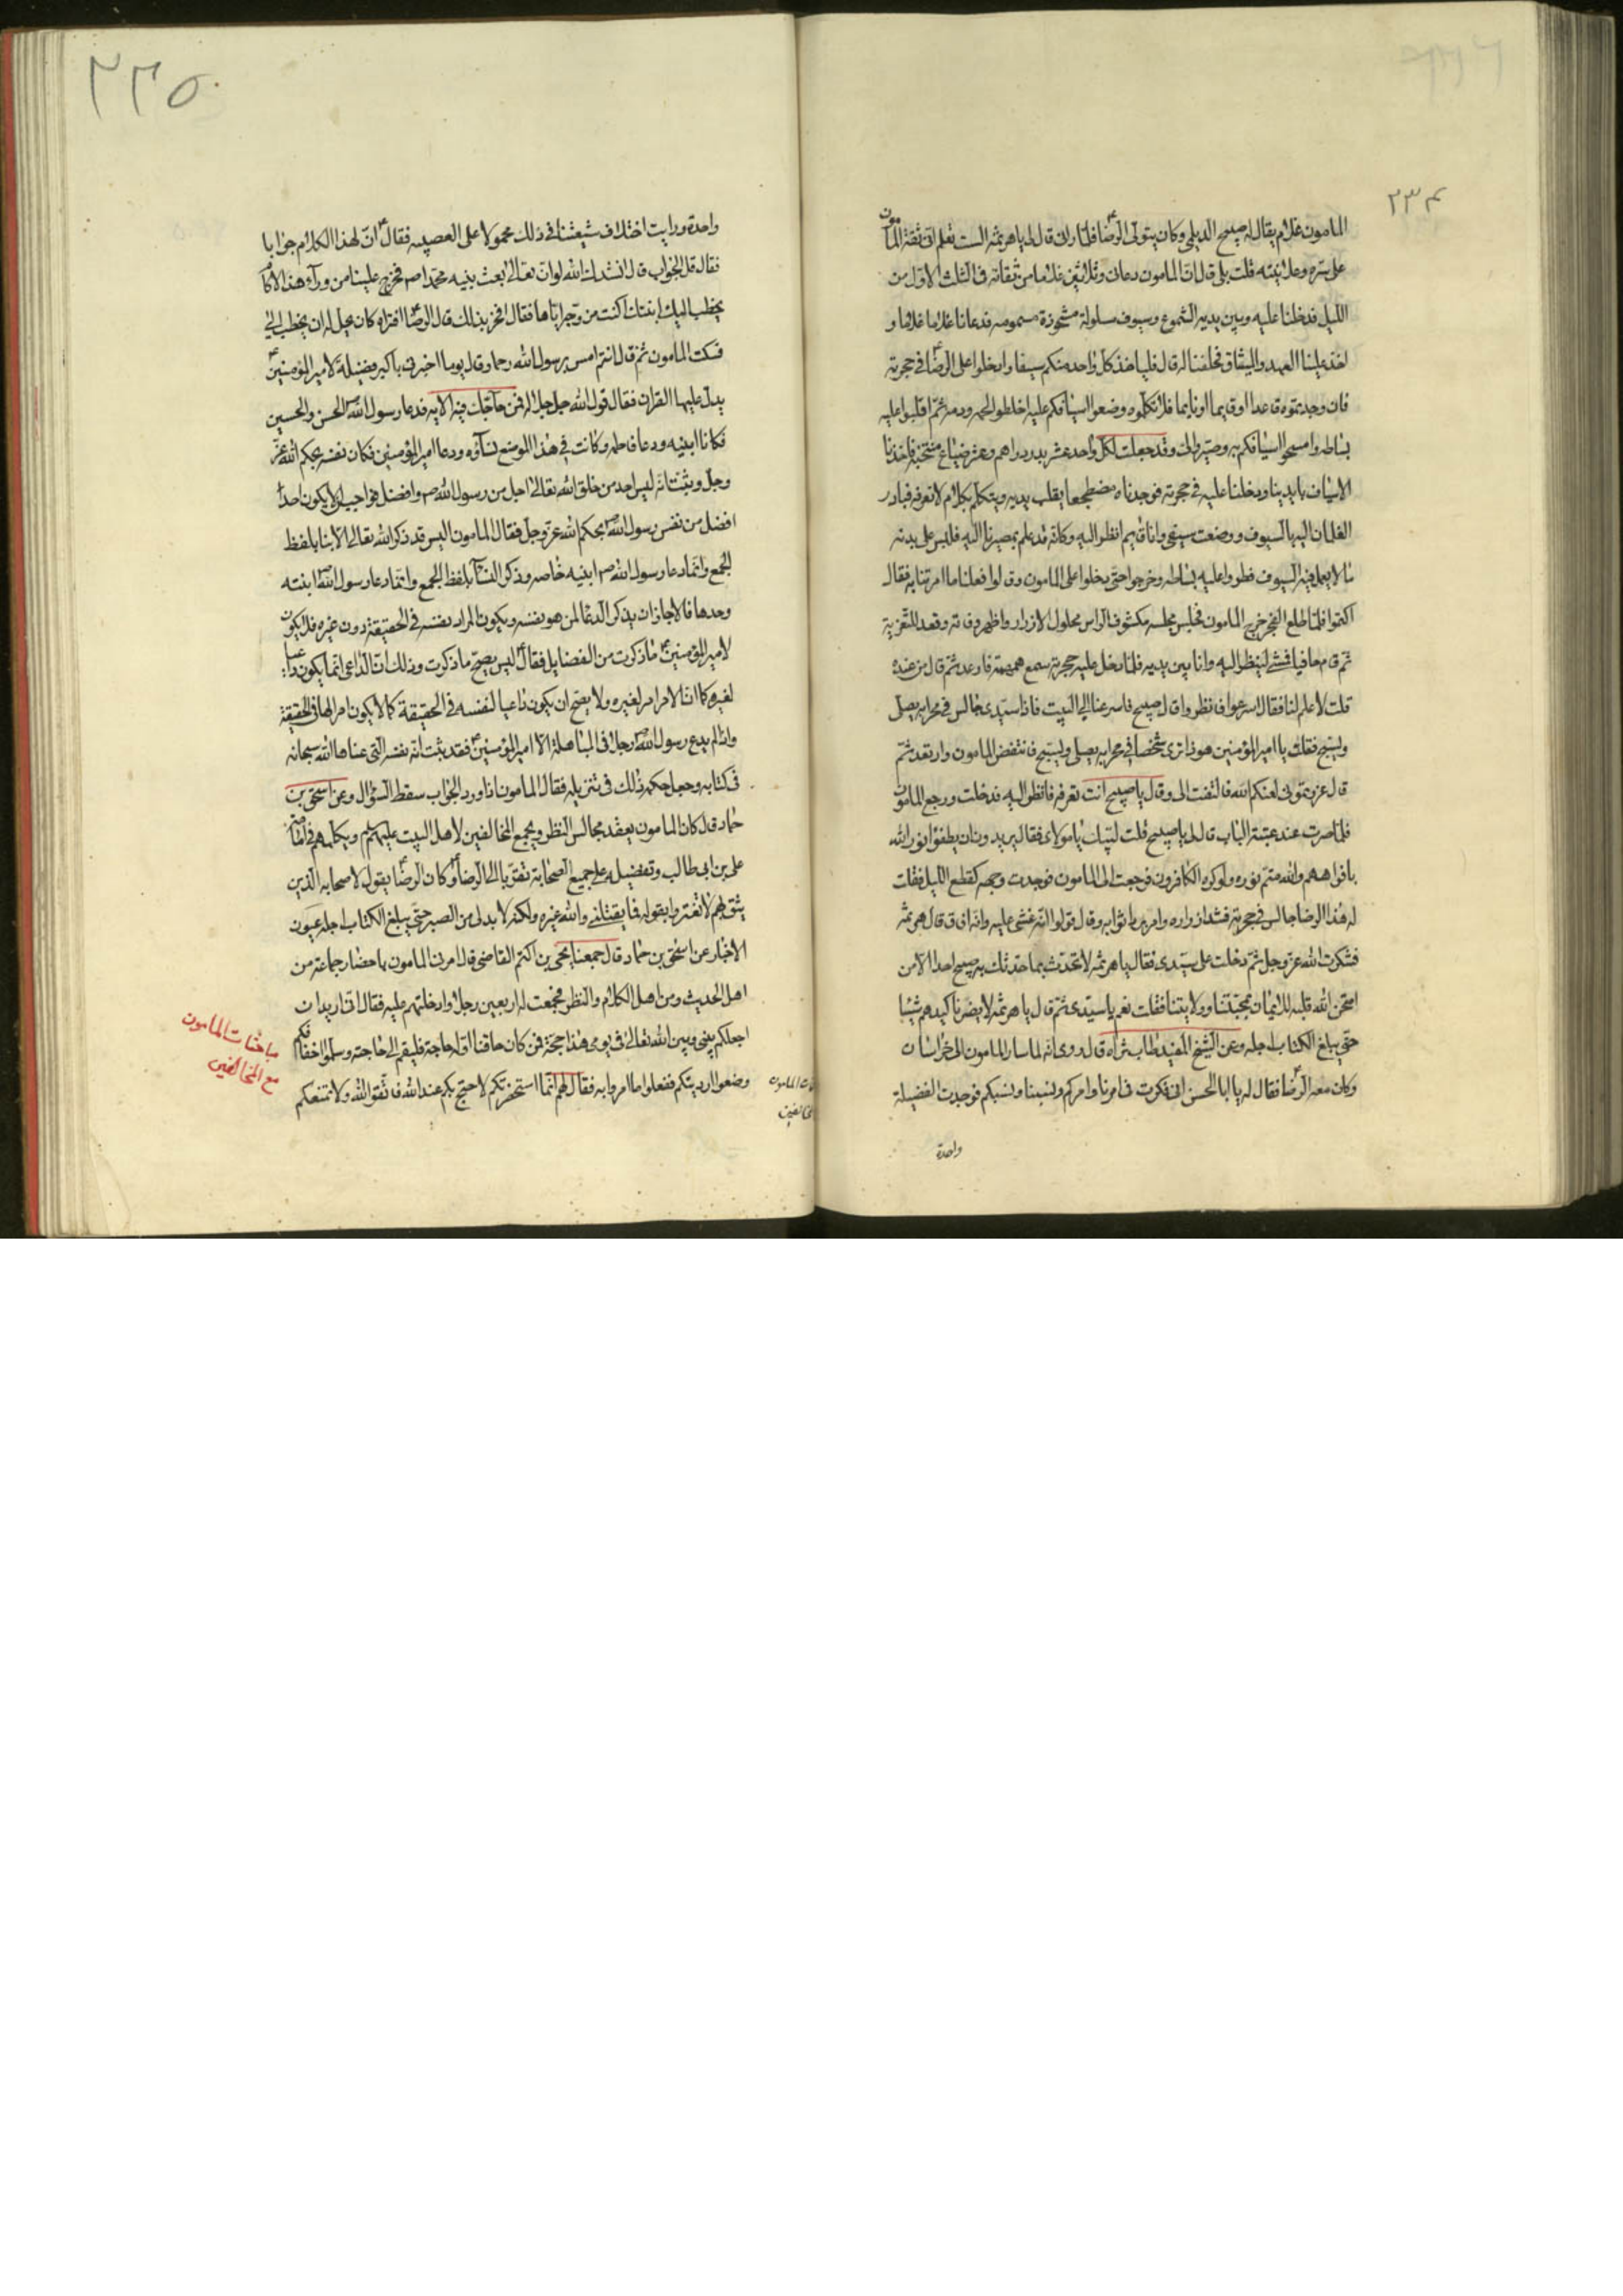 ٢٣٤
المامون غلام يقال له صبيح الديلمي وكان يتولى الرضا فلما راني قال لي يا هرثمة الست تعلم اني ثقة المأمون
على سره وعلانيته قلت بلى قال ان المامون دعاني وثلاثين غلاما من ثقاته في الثلث الاول من
الليل فدخلنا عليه وبين يديه الشموع وسيوف مسلولة مشحوذة مسمومه فدعانا غلاما غلاما و
اخذ علينا العهد والميثاق فحلفنا له قال فلياخذ كل واحد منكم سيفا وادخلوا على الرضا في حجرته
فان وجدتموه قاعدا او قايما او نايما فلا تكلموه وضعوا اسيافكم عليه اخلطوا لحمه ودمه ثم اقلبوا عليه
بساطه وامسحوا اسيافكم به وصيروا الي وقد جعلت لكل واحد عشر بدر دراهم وعشر ضياع منتخبة فاخذنا
الاسياف بايدينا ودخلنا عليه في حجرته فوجدناه مضطجعا يقلب يديه ويتكلم بكلام لا نعرفه فبادر
الغلمان اليه بالسيوف ووضعت سيفي وانا قايم انظر اليه وكانه قد علم بمصيرنا اليه فلبس على بدنه
ما لا يعمل فيه السيوف فطووا عليه بساطه وخرجوا حتى دخلوا على المامون وقالوا فعلنا ما امرتنا به فقال
اكتموا فلما طلع الفجر خرج المامون فجلس مجلسه مكشوف الراس محلول الازرار واظهر وفاته وقعد للتعزية
ثم قام حافيا فمشى لينظر اليه وانا بين يديه فلما دخل عليه حجرته سمع همهمة فارعد ثم قال من عنده
قلت لا علم لنا فقال اسرعوا فانظروا قال صبيح فاسرعنا الى البيت فاذا سيدي جالس في محرابه يصلى
ويسبح فقلت يا امير المؤمنين هو ذا نرى شخصا في محرابه يصلى ويسبح فانتفض المامون وارتعد ثم
قال غررتموني لعنكم الله فالتفت الي وقال يا صبيح انت تعرفه فانظر اليه فدخلت ورجع المامون
فلما صرت عند عتبة الباب قال لي يا صبيح قلت لبيك يا مولاى فقال يريدون ان يطفوا نور الله
بافواههم والله متم نوره ولو كره الكافرون فرجعت الى المامون فوجدت وجهه كقطع الليل فقلت
له هذا الرضا جالس في حجرته فشد ازراره وامر برد اثوابه وقال قولوا انه غشي عليه وانه افاق قال هرثمه
فشكرت الله عز وجل ثم دخلت على سيدى فقال يا هرثمه لا تحدث بما حدثك به صبيح احدا الا من
امتحن الله قلبه للايمان بمحبتنا وولايتنا فقلت نعم يا سيدى ثم قال يا هرثمه لا يضرنا كيدهم شيئا
حتى يبلغ الكتاب اجله وعن الشيخ المفيد طاب ثراه قال روى انه لما سار المامون الى خراسان
وكان معه الرضا فقال له يا ابا الحسن اني فكرت في امرنا وامركم ونسبنا ونسبكم فوجدت الفضيلة
واحدة
٢٣٥
واحدة ورايت اختلاف شيعتنا في ذلك محمولا على العصبيه فقال ان لهذا الكلام جوابا
فقال قل الجواب قال انشدك الله لو ان الله تعالى بعث نبيه محمدا صم فخرج علينا من ورآء هذا الاكام
يخطب اليك ابنتك اكنت مزوجه اياها فقال افخر بذلك قال الرضا افتراه كان يحل له ان يخطب الي
فسكت المامون ثم قال انتم امس برسول الله رحما وقال يوما اخبرني باكبر فضيلة لامير المؤمنين
يدل عليها القران فقال قول الله جل جلاله فمن حاجك فيه الايه فدعا رسول الله الحسن والحسين
فكانا ابنيه ودعا فاطمه وكانت في هذا الموضع نساؤه ودعا امير المؤمنين فكان نفسه بحكم الله عز
وجل وثبت انه ليس احد من خلق الله تعالى اجل من رسول الله صم وافضل فواجب ان لا يكون احدا
افضل من نفس رسول الله بحكم الله عز وجل فقال المامون اليس قد ذكر الله تعالى الابنا بلفظ
الجمع وانما دعا رسول الله صم ابنيه خاصه وذكر النسآء بلفظ الجمع وانما دعا رسول الله ابنته
وحدها فالا جاز ان يذكر الدعا لمن هو نفسه ويكون المراد نفسه في الحقيقة دون غيره فلا يكون
لامير المؤمنين ما ذكرت من الفضايل فقال ليس يصح ما ذكرت وذلك ان الداعي انما يكون داعيا
لغيره كما ان الامر امر لغيره ولا يصح ان يكون داعيا لنفسه في الحقيقة كما لا يكون امرا لها في الحقيقة
واذا لم يدع رسول الله رجلا في المباهلة الا امير المؤمنين فقد ثبت انه نفسه التي عناها الله سبحانه
في كتابه وجعل حكمه ذلك في تنزيله فقال المامون اذا ورد الجواب سقط السؤال وعن اسحق بن
حماد قال كان المامون يعقد مجالس النظر ويجمع المخالفين لاهل البيت عليهم لم ويكلمهم في امامة
على بن ابى طالب وتفضيله على جميع الصحابة تقربا الى الرضا وكان الرضا يقول لاصحابه الذين
يثق بهم لا تغتروا بقوله فما يقتلني والله غيره ولكنه لا بد لى من الصبر حتى يبلغ الكتاب اجله عيون
الاخبار عن اسحق بن حماد قال جمعنا يحيى بن اكثم القاضي قال امرني المامون باحضار جماعة من
اهل الحديث ومن اهل الكلام والنظر فجمعت له اربعين رجلا وادخلتهم عليه فقال انى اريد ان
اجعلكم بيني وبين الله تعالى في يومى هذا حجة فمن كان حاقنا او له حاجة فليقم الى حاجته وسلوا خفافكم
وضعوا ارديتكم ففعلوا ما امروا به فقال لهم انما استحضرتكم لاحتج بكم عند الله فاتقوا الله ولا يمنعكم
مباحثات المامون
مع المخالفين